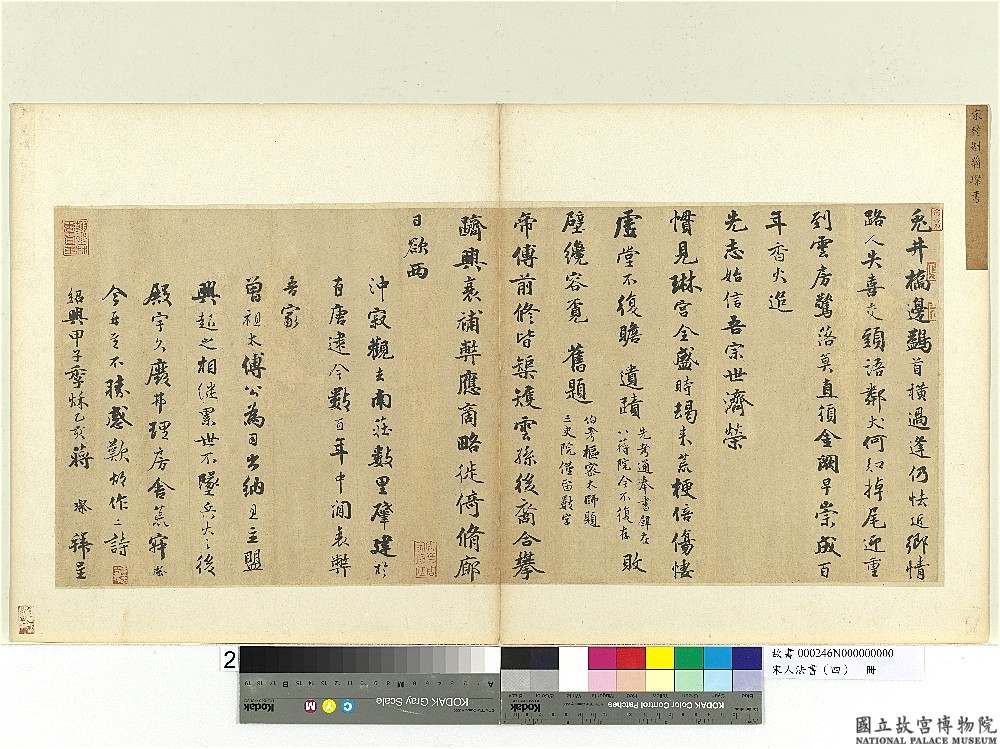 兔井橋邊鷁首橫過逢仍怯近鄉情
路人失喜交頭語鄰犬何知掉尾迎重
到雲房驚落莫直須金闕早崇成百
年香火追
先志始信吾宗世濟榮
慣見琳宮全盛時朅來荒梗倍傷悽
虛堂不復瞻遺蹟 先考通奉書錦 今不復存 敗
壁纔容覓舊題 伯考樞密太師題 三史院僅留數字
帝傅前修皆榘矱雲孫後裔合攀
躋興衰補弊應商略徙倚脩廊
日欲西
沖寂觀去南莊數里肇建於
有唐遠今數百年中間衰弊
吾家
曾祖太傅公為司出納且主盟
興起之相繼累世不墜兵火之後
殿宇久廢弗理房舍荒穢
今至不勝感歎作二詩
紹興甲子季秋乙亥蔣璨拜呈
故書000246N000000000
宋人法書(四) 冊
2
Kodak
KODAK Gray Scale
KODAK Color Control Patches
國立故宮博物院
NATIONAL PALACE MUSEUM